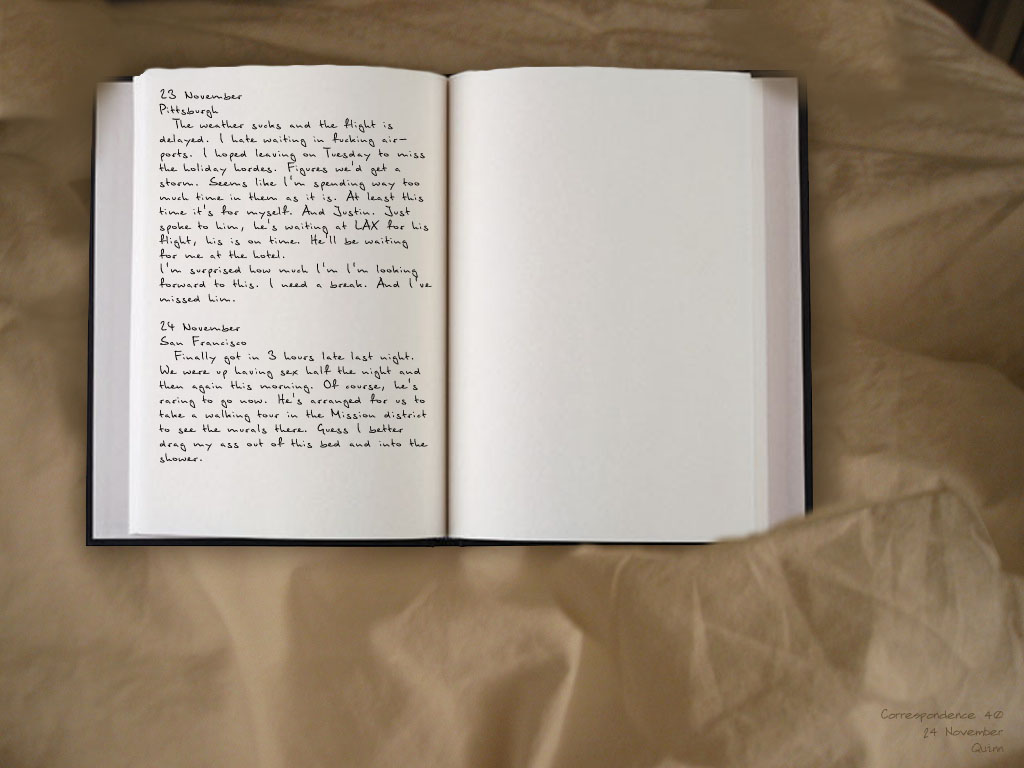 23 November
Pittsburgh
The weather sucks and the flight is
delayed. I hate waiting in fucking air-
ports. I hoped leaving on Tuesday to miss
the holiday hordes. Figures we'd get a
storm. Seems like I'm spending way too
much time in them as it is. At least this
time it's for myself. And Justin. Just
spoke to him, he's waiting at LAX for his
flight, his is on time. He'll be waiting
for me at the hotel.
I'm surprised how much I'm I'm looking
forward to this. I need a break. And I've
missed him.
24 November
San Francisco
Finally got in 3 hours late last night.
We were up having sex half the night and
then again this morning. Of course, he's
raring to go now. He's arranged for us to
take a walking tour in the Mission district
to see the murals there. Guess I better
drag my ass out of this bed and into the
shower.
Correspondence
24 November
Quinn